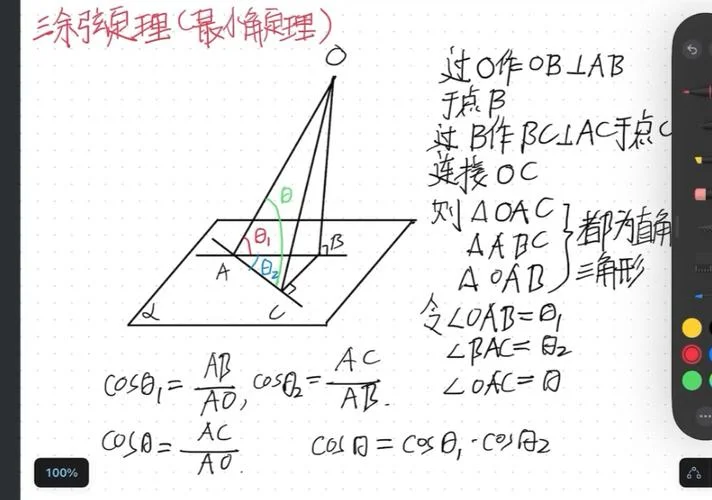 三余弦定理(最小角定理)
O
过O作OB⊥AB
于点B
过B作BC⊥AC于点C
连接OC
则 △OAC
△ABC
△OAB
都为直角
三角形
令∠OAB=θ₁
∠BAC=θ₂
∠OAC=θ
θ
θ₁
θ₂
A
B
C
α
cosθ₁=AB/AO, cosθ₂=AC/AB.
cosθ=AC/AO.
cosθ=cosθ₁·cosθ₂
100%